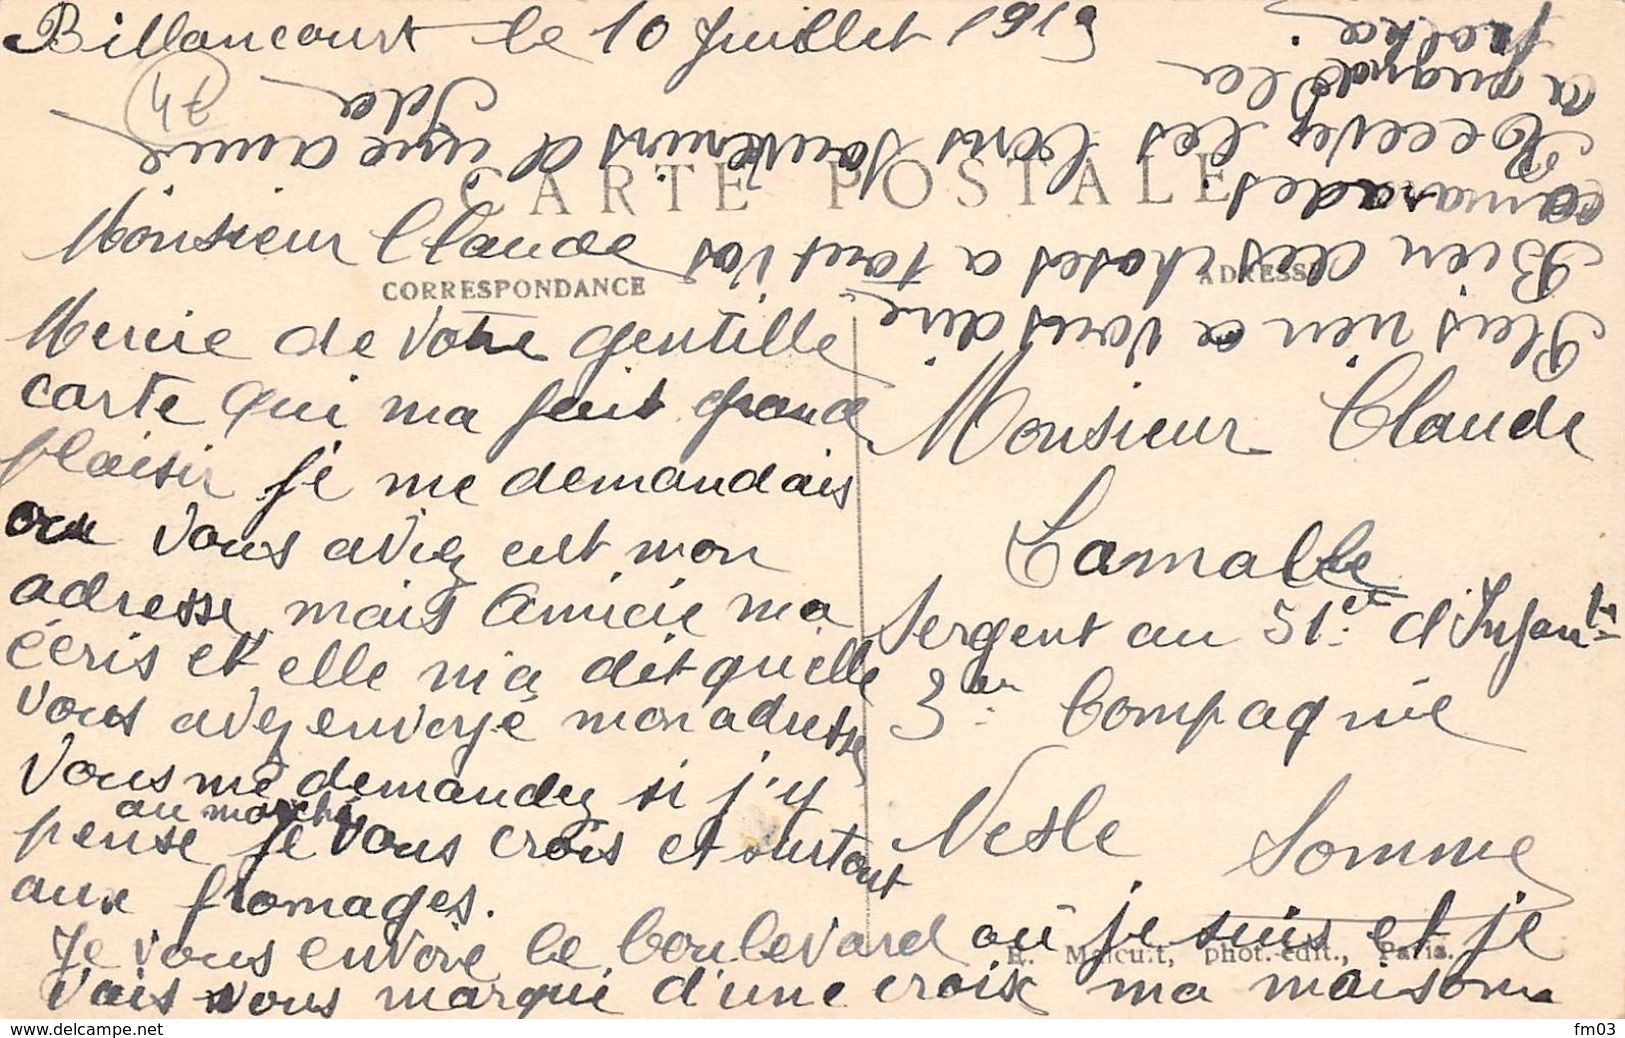 Billancourt le 10 Juillet 1918
74
CARTE POSTALE
CORRESPONDANCE
ADRESSE
Monsieur Claude
Mercie de votre gentille
carte qui ma fait grand
plaisir je me demandais
ou vous aviez eut mon
adresse mais
ma
écris et elle m'a dit quelle
vous avez envoyé mon adresse
Vous me demandez si j'y
pense au marché je vous crois et surtout
aux fromages.
Je vous envoie le boulevard où je suis et je
vais vous marqué d'une croix ma maison
Monsieur Claude
Lamalle
Sergent au 51e d'Infantie
3em Compagnie
Nesle Somme
E. Malcuit, phot.-édit., Paris.
Plus rien a vous dire
Bien des choses a tout vos
camarades
Recevez les bons souvenirs d'une amie
Ida
a quand la
fm03